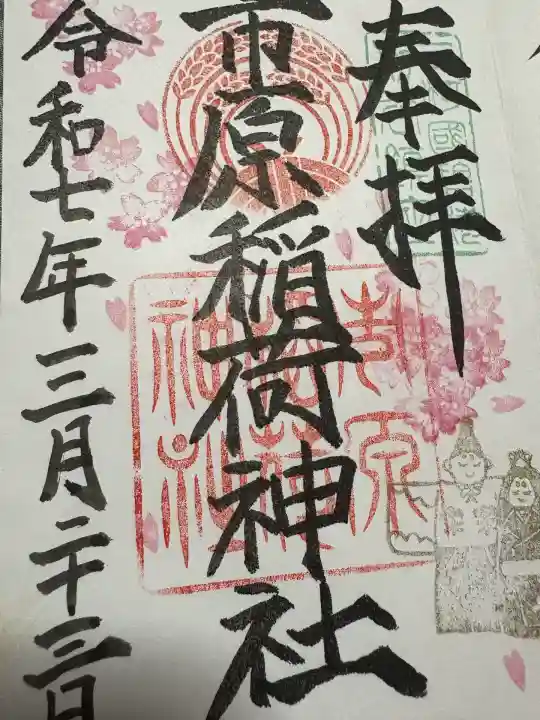 奉拝
市原稲荷神社
令和七年三月二十三日
市原
稲荷
神社